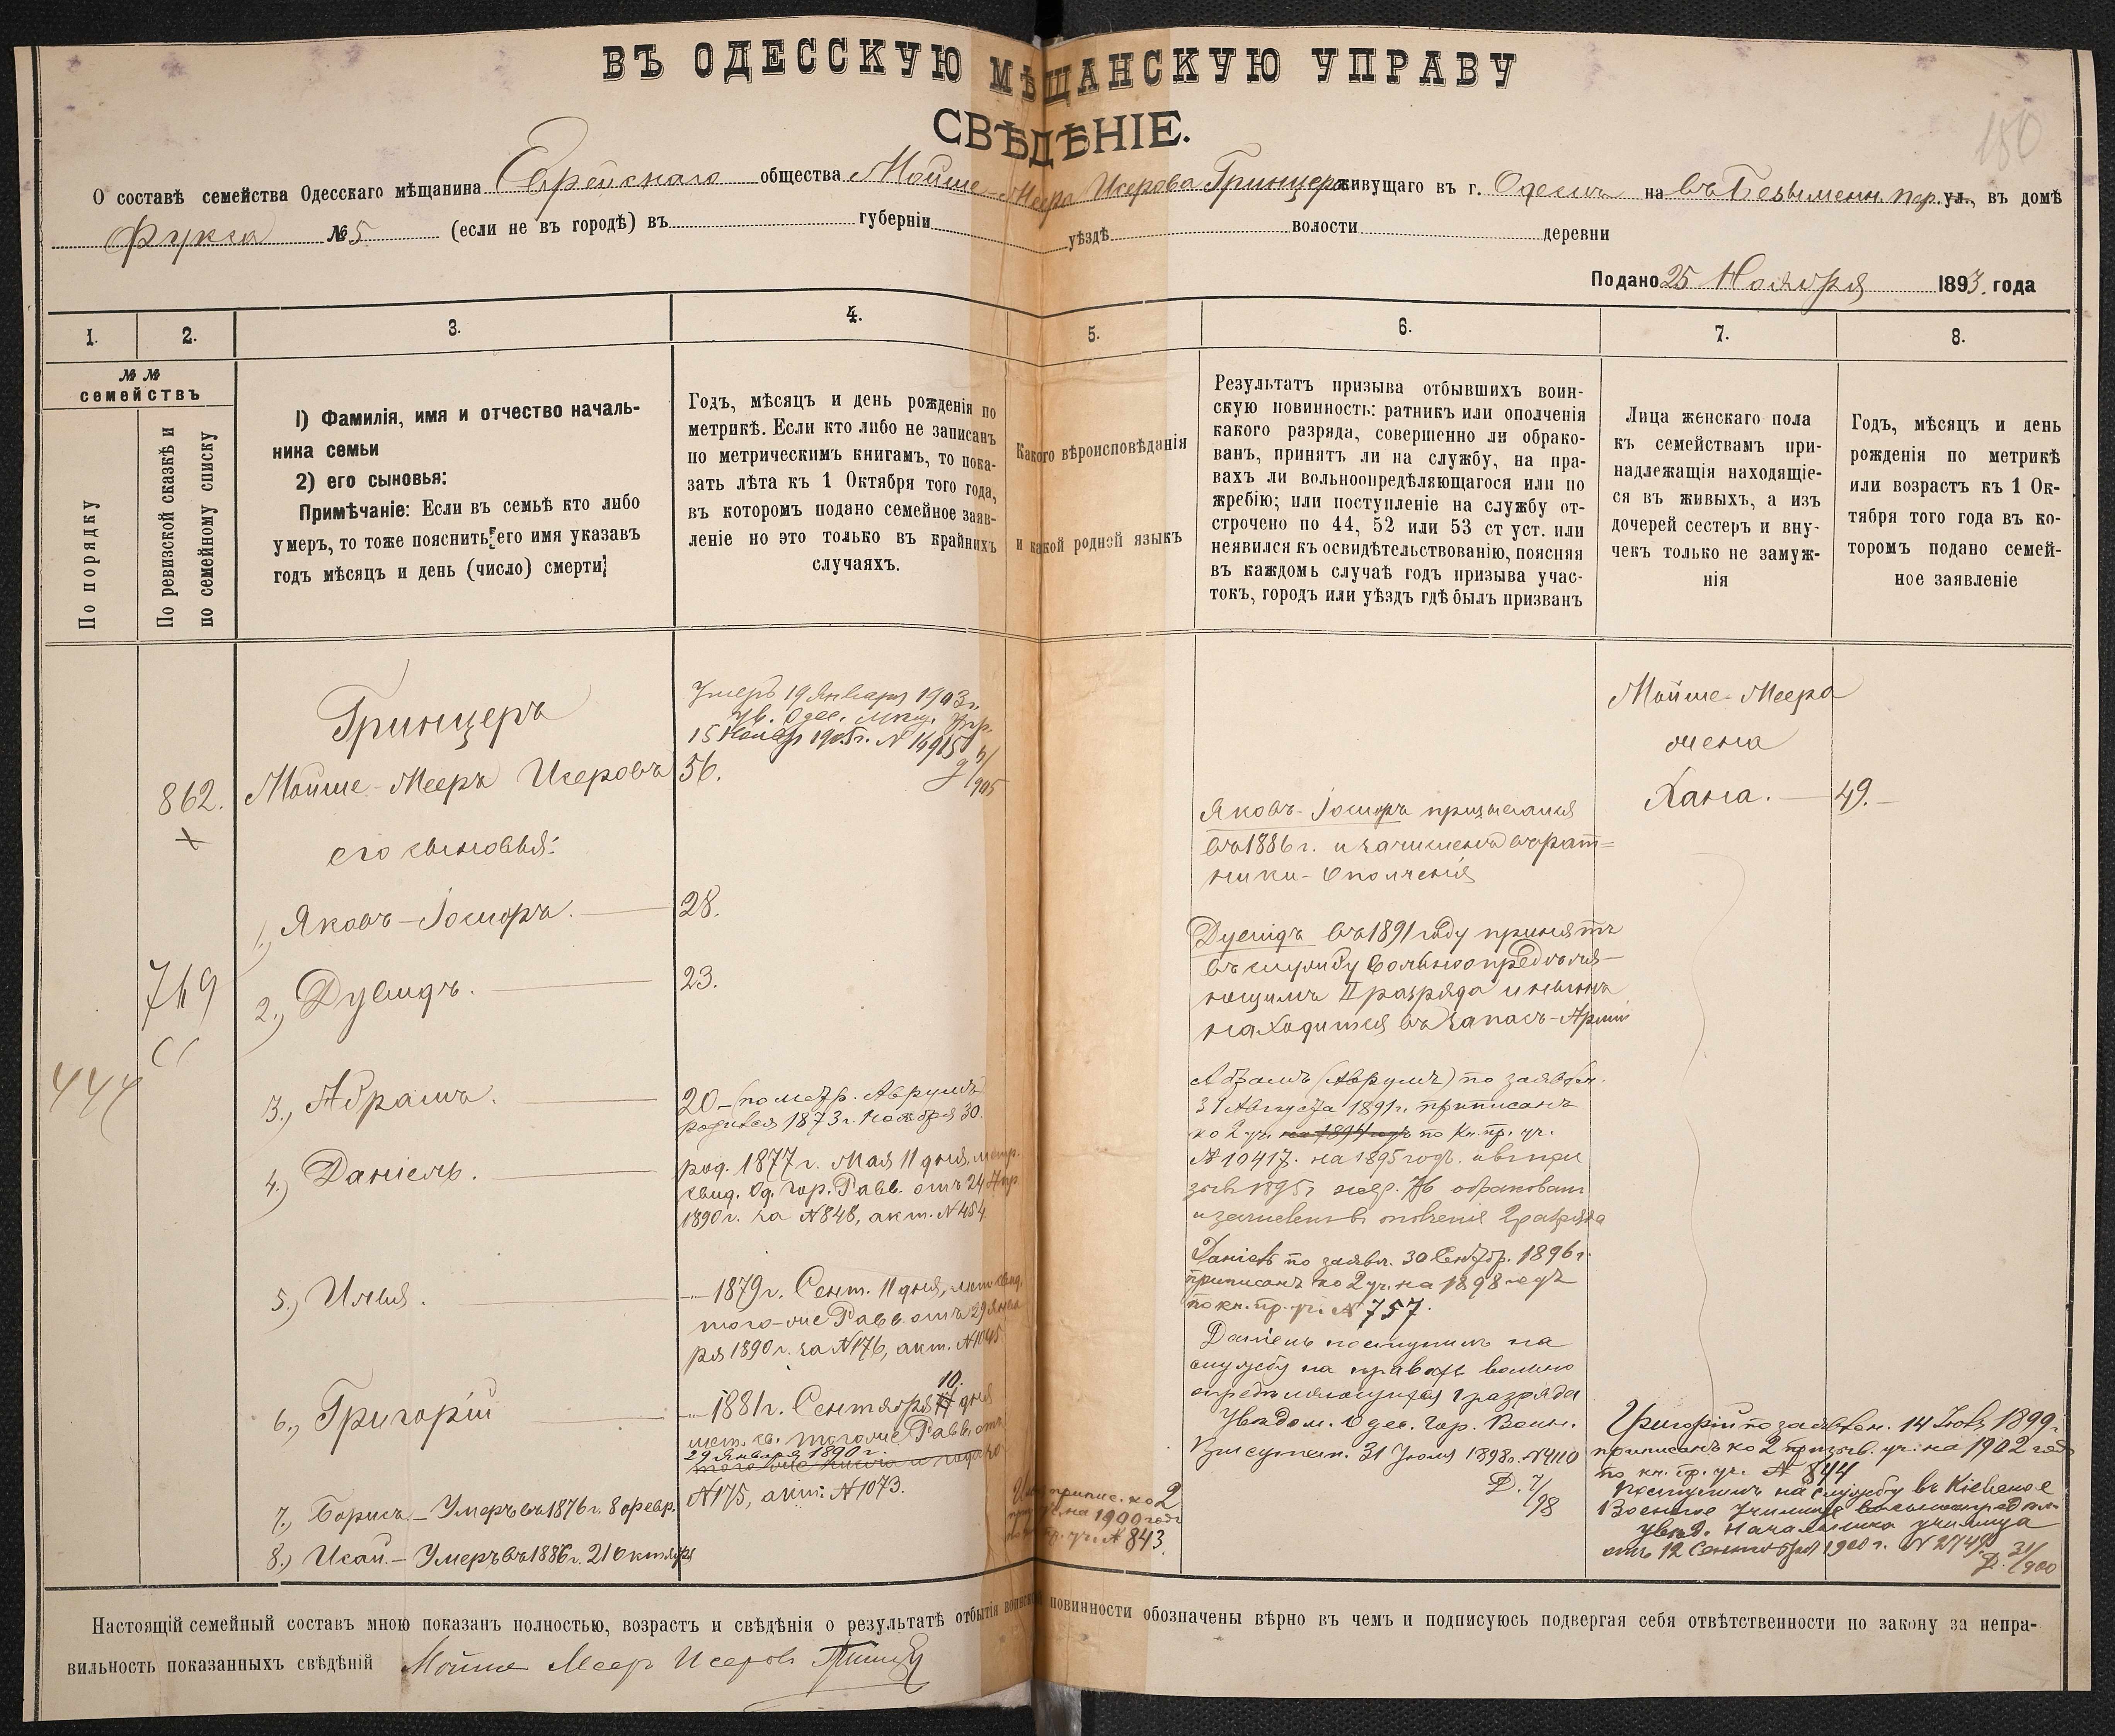 ВЪ ОДЕССКУЮ МѢЩАНСКУЮ УПРАВУ
СВѢДѢНІЕ.
150
О составѣ семейства Одесскаго мѣщанина Еврейскаго общества Мойше-Меера Исерова Гринцера живущаго въ г. Одессѣ на въ Безымен. пер. ул., въ домѣ
Фукса №5 (если не въ городѣ) въ губерніи уѣздѣ волости деревни
Подано 25 Ноября 1893. года
1. 2. 3. 4. 5. 6. 7. 8.
№ №
семействъ
По порядку
По ревизской сказкѣ и
по семейному списку
1) Фамилія, имя и отчество началь-
ника семьи
2) его сыновья:
Примѣчаніе: Если въ семьѣ кто либо
умеръ, то тоже пояснить его имя указавъ
годъ мѣсяцъ и день (число) смерти
Годъ, мѣсяцъ и день рожденія по
метрикѣ. Если кто либо не записанъ
по метрическимъ книгамъ, то пока-
зать лѣта къ 1 Октября того года,
въ которомъ подано семейное заяв-
леніе но это только въ крайнихъ
случаяхъ.
Какого вѣроисповѣданія
и какой родной языкъ
Результатъ призыва отбывшихъ воин-
скую повинность: ратникъ или ополченія
какого разряда, совершенно ли обрако-
ванъ, принятъ ли на службу, на пра-
вахъ ли вольноопредѣляющагося или по
жребію; или поступленіе на службу от-
строчено по 44, 52 или 53 ст уст. или
неявился къ освидѣтельствованію, поясняя
въ каждомъ случаѣ годъ призыва учас-
токъ, городъ или уѣздъ гдѣ былъ призванъ
Лица женскаго пола
къ семействамъ при-
надлежащія находящіе-
ся въ живыхъ, а изъ
дочерей сестеръ и вну-
чекъ только не замуж-
нія
Годъ, мѣсяцъ и день
рожденія по метрикѣ
или возрастъ къ 1 Ок-
тября того года въ ко-
торомъ подано семей-
ное заявленіе
444
862.
769
Гринцеръ
Мойше-Мееръ Исеровъ
его сыновья:
1.) Яковъ-Іосифъ.
2.) Дувидъ.
3.) Абрамъ.
4.) Даніель.
5.) Илья.
6.) Григорій
7.) Борисъ - Умеръ въ 1876 г. 8 февр.
8.) Исай. - Умеръ въ 1886 г. 21 октября
Умеръ 19 Января 1903 г.
ув. Одес. мѣщ. Упр.
15 Ноябр 1905 г. № 14915
56.
28.
23.
20 - (по метр. Аврумъ)
родился 1873 г. Ноября 30.
род. 1877 г. Мая 11 дня, метр.
свид. Од. гор. Равв. отъ 24 Апр
1890 г. за №848, акт. №454
- 1879 г. Сент. 11 дня, мет. свид.
того-же Равв. отъ 29 Янва
ря 1890 г. за №176, акт. №1045
10.
- 1881 г. Сентября 11 дня
мет. св. того же Равв. отъ
29 Января 1890 г.
того же числа и года за
№175, акт. №1073.
Илья припис. ко 2
на 1900 годъ
пр. уч. №843.
Яковъ-Іосифъ призывался
въ 1886 г. и зачисленъ въ рат=
ники-Ополченія
Дувидъ въ 1891 году принятъ
въ службу Вольноопредѣля-
ющимъ II разряда и нынѣ
находится въ запасѣ-Арміи
Абрамъ (Аврумъ) по заявлен.
31 Августа 1891 г. приписанъ
ко 2 уч. на 1894 годъ по кн. пр. уч.
№10417. на 1895 годъ.
1895 г. обракованъ
и зачисленъ въ ополченіе 2 разряда
Даніель по заявл. 30 Сентбр. 1896 г.
приписанъ ко 2 уч. на 1898 годъ
по кн. пр. уч. № 757.
Даніель поступилъ на
службу на правахъ вольно
опредѣляющагося 1 разряда
Увѣдом. Одес. Гор. Воин.
Присутств. 31 Іюля 1898 г. №4110
Д. 7/98
Мойше-Меера
жена
Хана. - 49. -
Григорій по заявлен. 14 Іюля 1899 г.
приписанъ ко 2 призыв. уч. на 1902 годъ
по кн. пр. уч. № 844
Поступилъ на службу въ Кіевское
Военное Училище вольноопредѣл.
увѣд. Начальника училища
отъ 12 Сентября 1900 г. № 2749
Д. 31/900
Настоящій семейный составъ мною показанъ полностью, возрастъ и свѣдѣнія о результатѣ отбытія воинской повинности обозначены вѣрно въ чемъ и подписуюсь подвергая себя отвѣтственности по закону за непра-
вильность показанныхъ свѣдѣній Мойше Меер Исеровъ Гринцер